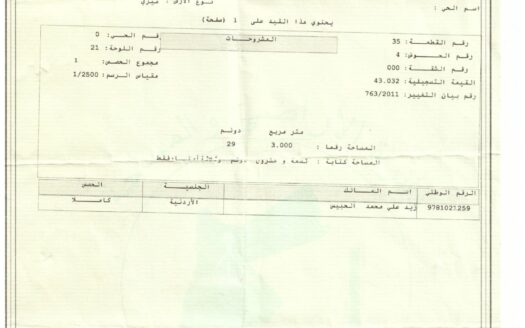 اسم الحي :
نوع الأرض : ميري
يحتوي هذا القيد على 1 (صفحة)
رقم القطعة : 35
المشروحات
رقم الحي : 0
رقم الحوض : 4
رقم اللوحة : 21
رقم الشقة : 000
مجموع الحصص : 1
القيمة التسجيلية : 43.032
مقياس الرسم : 1/2500
رقم بيان التغيير : 763/2011
متر مربع دونم
المساحة رقما : 3.000 29
المساحة كتابة : تسعه و عشرون دونم فقط
الرقم الوطني اسم المالك الجنسية الحصص
9781021259 زيد علي محمد الحبيس الأردنية كاملا